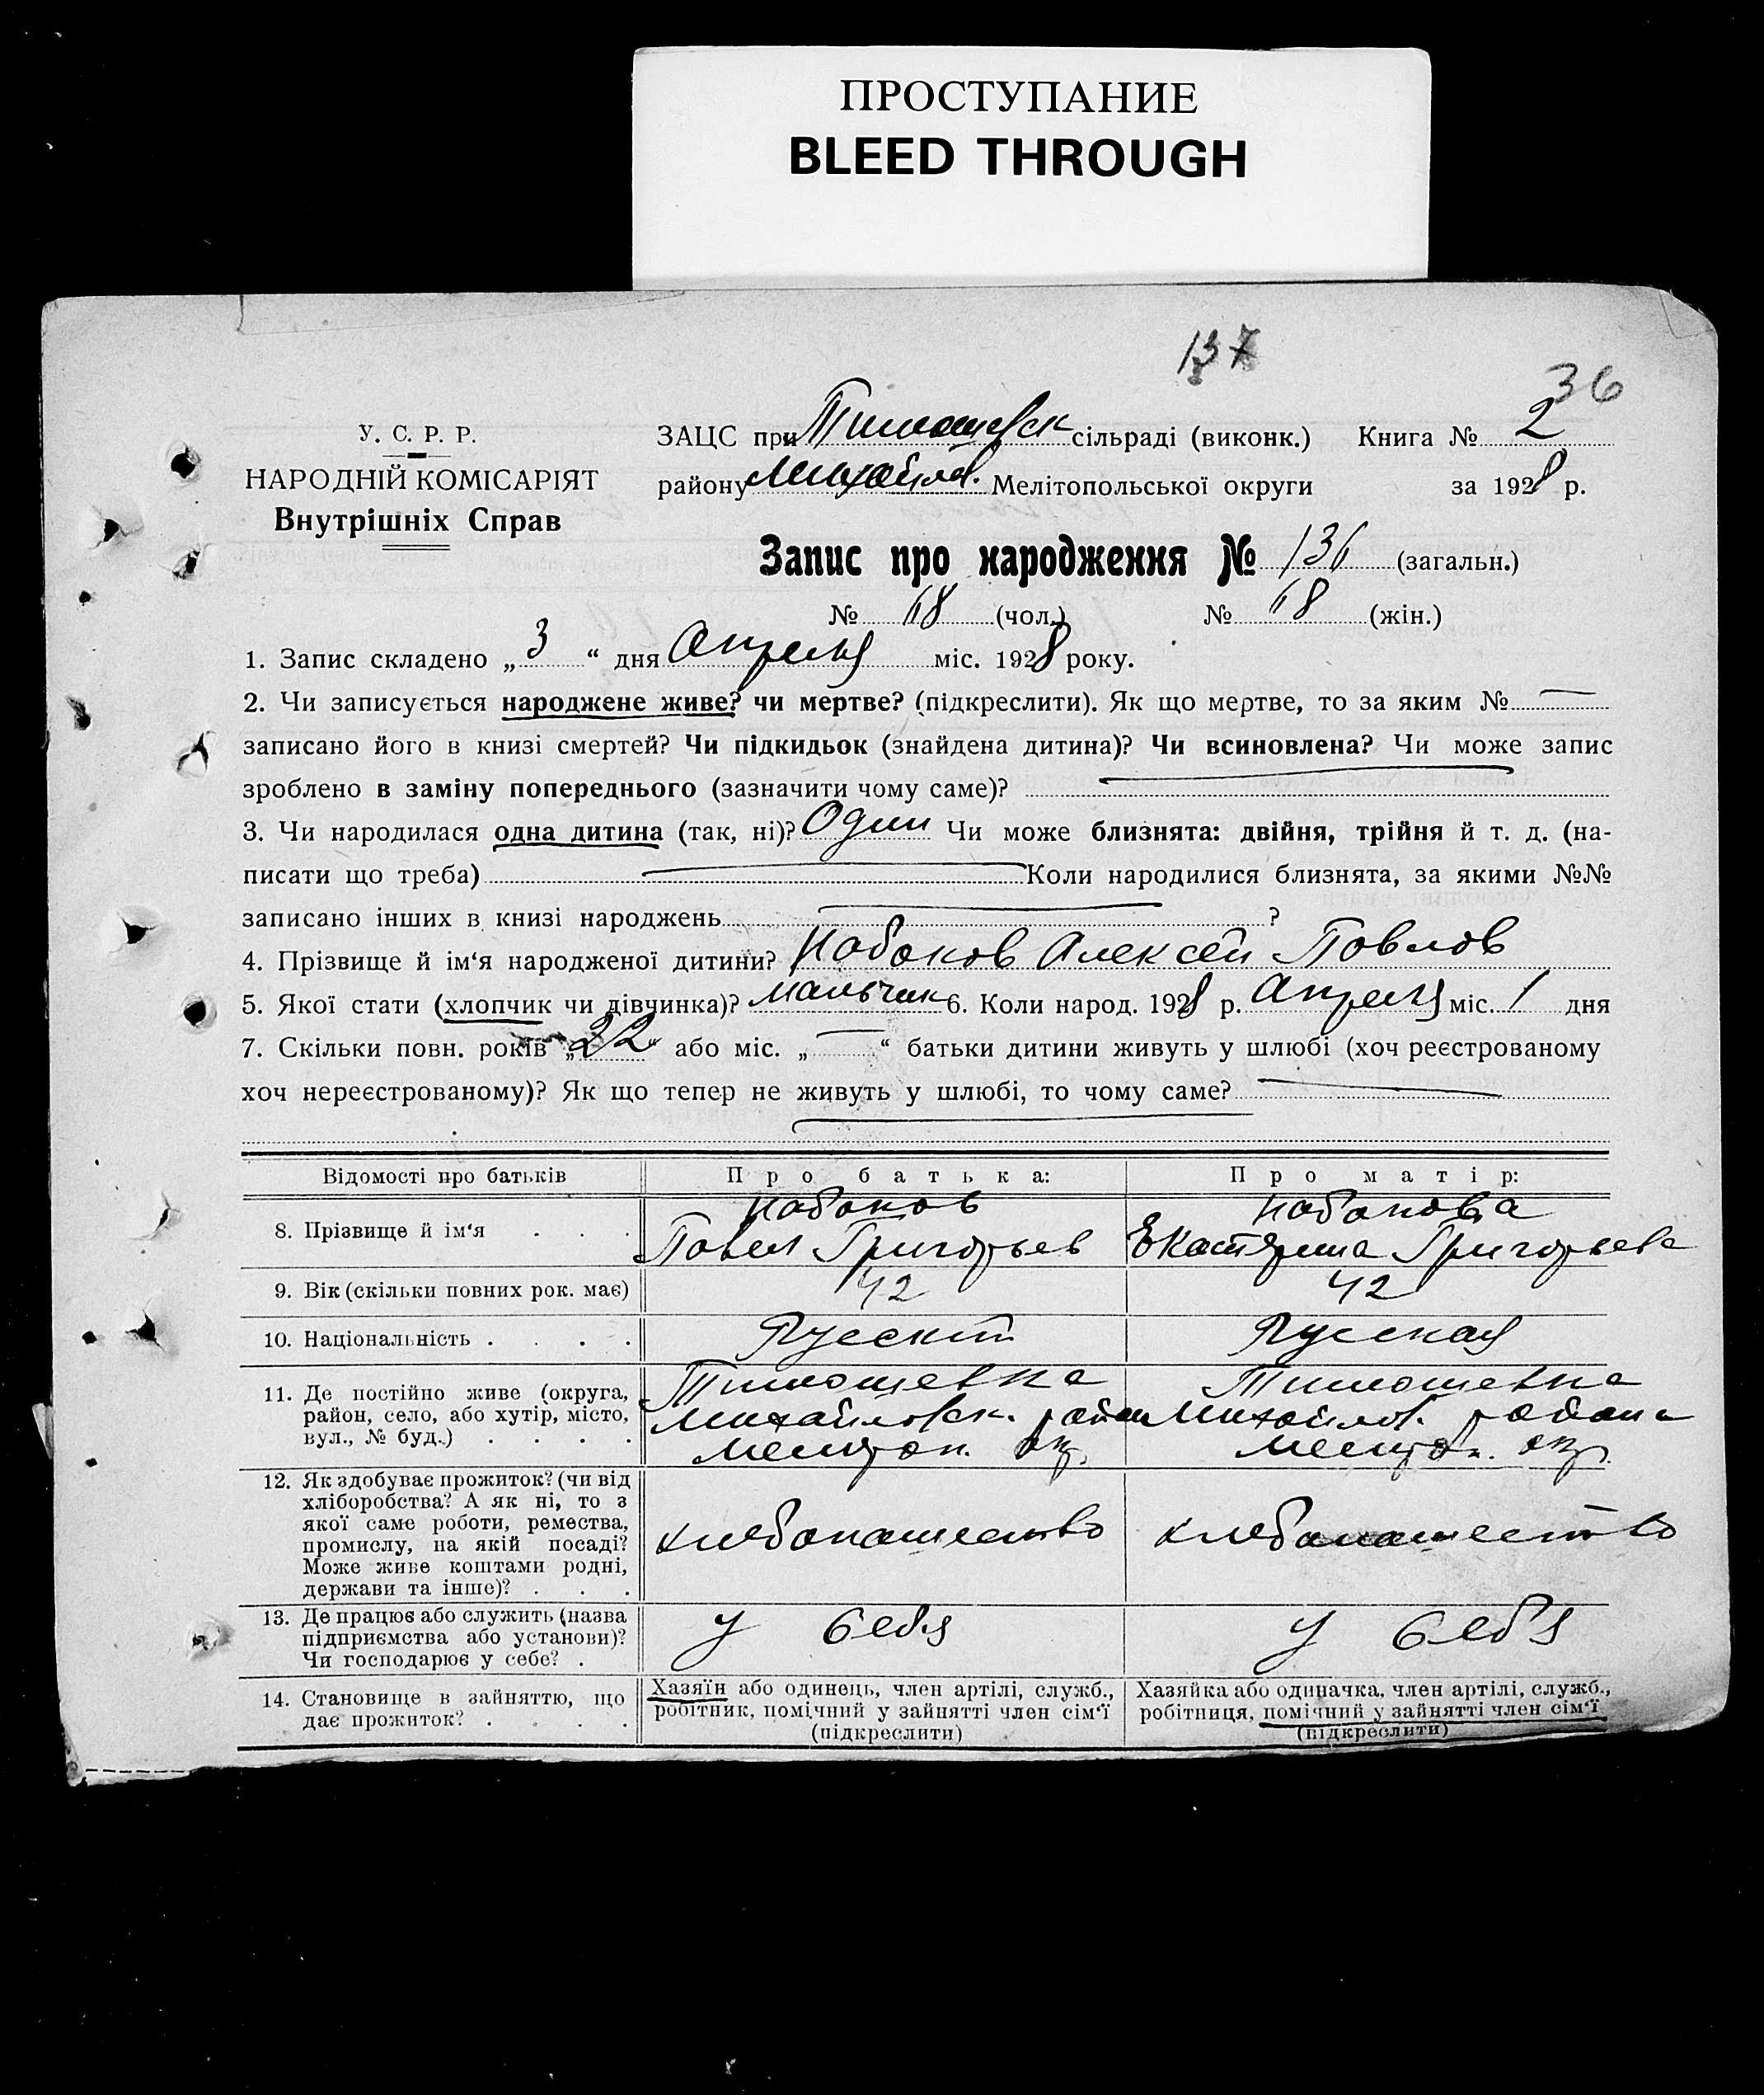 ПРОСТУПАНИЕ
BLEED THROUGH
137
36
У. С. Р. Р.
НАРОДНІЙ КОМІСАРІЯТ
Внутрішніх Справ
ЗАЦС при Тимошевск сільраді (виконк.) Книга № 2
району Михайлов. Мелітопольської округи за 1928 р.
Запис про народження № 136 (загальн.)
№ 68 (чол.) № 68 (жін.)
1. Запис складено „ 3 “ дня Апреля міс. 1928 року.
2. Чи записується народжене живе? чи мертве? (підкреслити). Як що мертве, то за яким № —
записано його в книзі смертей? Чи підкидьок (знайдена дитина)? Чи всиновлена? Чи може запис
зроблено в заміну попереднього (зазначити чому саме)?
3. Чи народилася одна дитина (так, ні)? Один Чи може близнята: двійня, трійня й т. д. (на-
писати що треба) — Коли народилися близнята, за якими №№
записано інших в книзі народжень — ?
4. Прізвище й ім‘я народженої дитини? Набоков Алексей Павлов
5. Якої стати (хлопчик чи дівчинка)? мальчик 6. Коли народ. 1928 р. Апреля міс. 1 дня
7. Скільки повн. років „ 22 “ або міс. „ — “ батьки дитини живуть у шлюбі (хоч реєстрованому
хоч нереєстрованому)? Як що тепер не живуть у шлюбі, то чому саме? —
Відомості про батьків Про батька: Про матір:
8. Прізвище й ім‘я . . . Набоков Павел Григорьев Набокова Екатерина Григорьева
9. Вік (скільки повних рок. має) 42 42
10. Національність . . . . Русский Русская
11. Де постійно живе (округа,
район, село, або хутір, місто,
вул., № буд.) . . . .
Тимошевка
Михайловск. район
Мелитоп. окр.
Тимошевка
Михайлов. района
Мелитоп. окр.
12. Як здобуває прожиток? (чи від
хліборобства? А як ні, то з
якої саме роботи, ремества,
промислу, на якій посаді?
Може живе коштами родні,
держави та інше)? . . .
хлебопашество
хлебопашество
13. Де працює або служить (назва
підприємства або установи)?
Чи господарює у себе? .
у себя
у себя
14. Становище в зайняттю, що
дає прожиток? . . . .
Хазяїн або одинець, член артілі, служб.,
робітник, помічний у зайнятті член сім‘ї
(підкреслити)
Хазяйка або одиначка, член артілі, служб.,
робітниця, помічний у зайнятті член сім‘ї
(підкреслити)